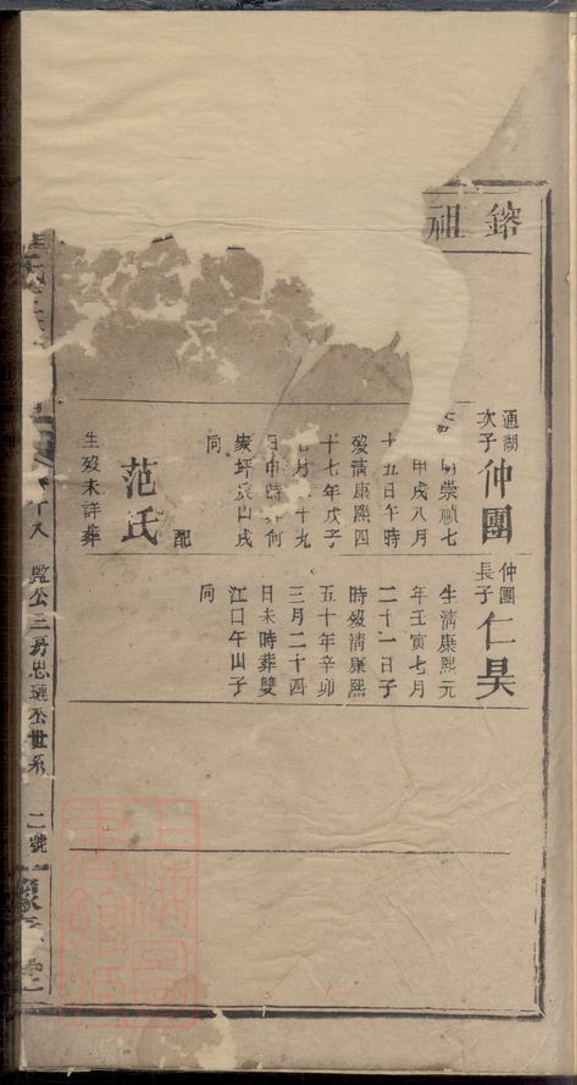 鎔
祖
通湖
次子
仲團
明崇禎七
甲戌八月
十五日午時
歿淸康熙四
十七年戊子
月二十九
日申時葬何
家坪辰山戌
同
配
范氏
生歿未詳葬
仲團
長子
仁昊
生淸康熙元
年壬寅七月
二十一日子
時歿淸康熙
五十年辛卯
三月二十四
日未時葬雙
江口午山子
同
公三房思璉公世系
二號